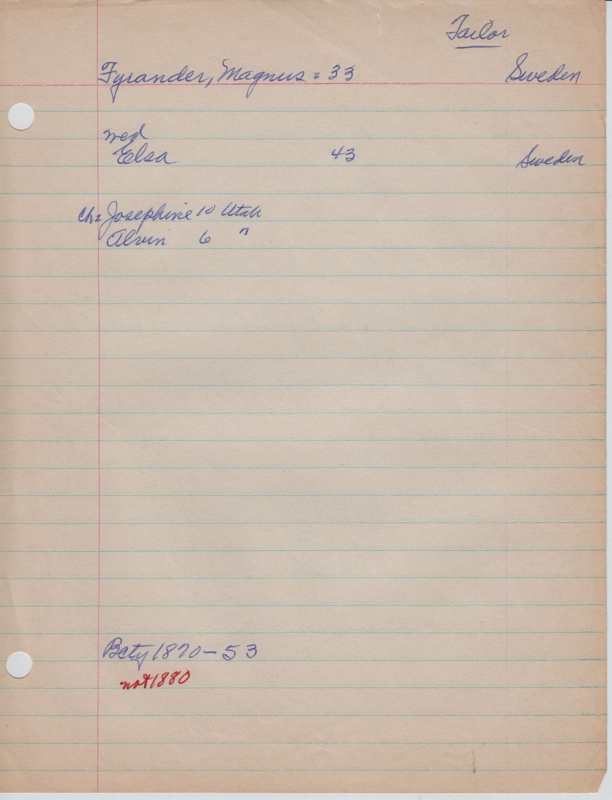 Tailor
Fyrander, Magnus = 33 Sweden
wed
Elsa 43 Sweden
Ch: Josephine 10 Utah
Alvin 6 "
Bcty 1870-53
not 1880